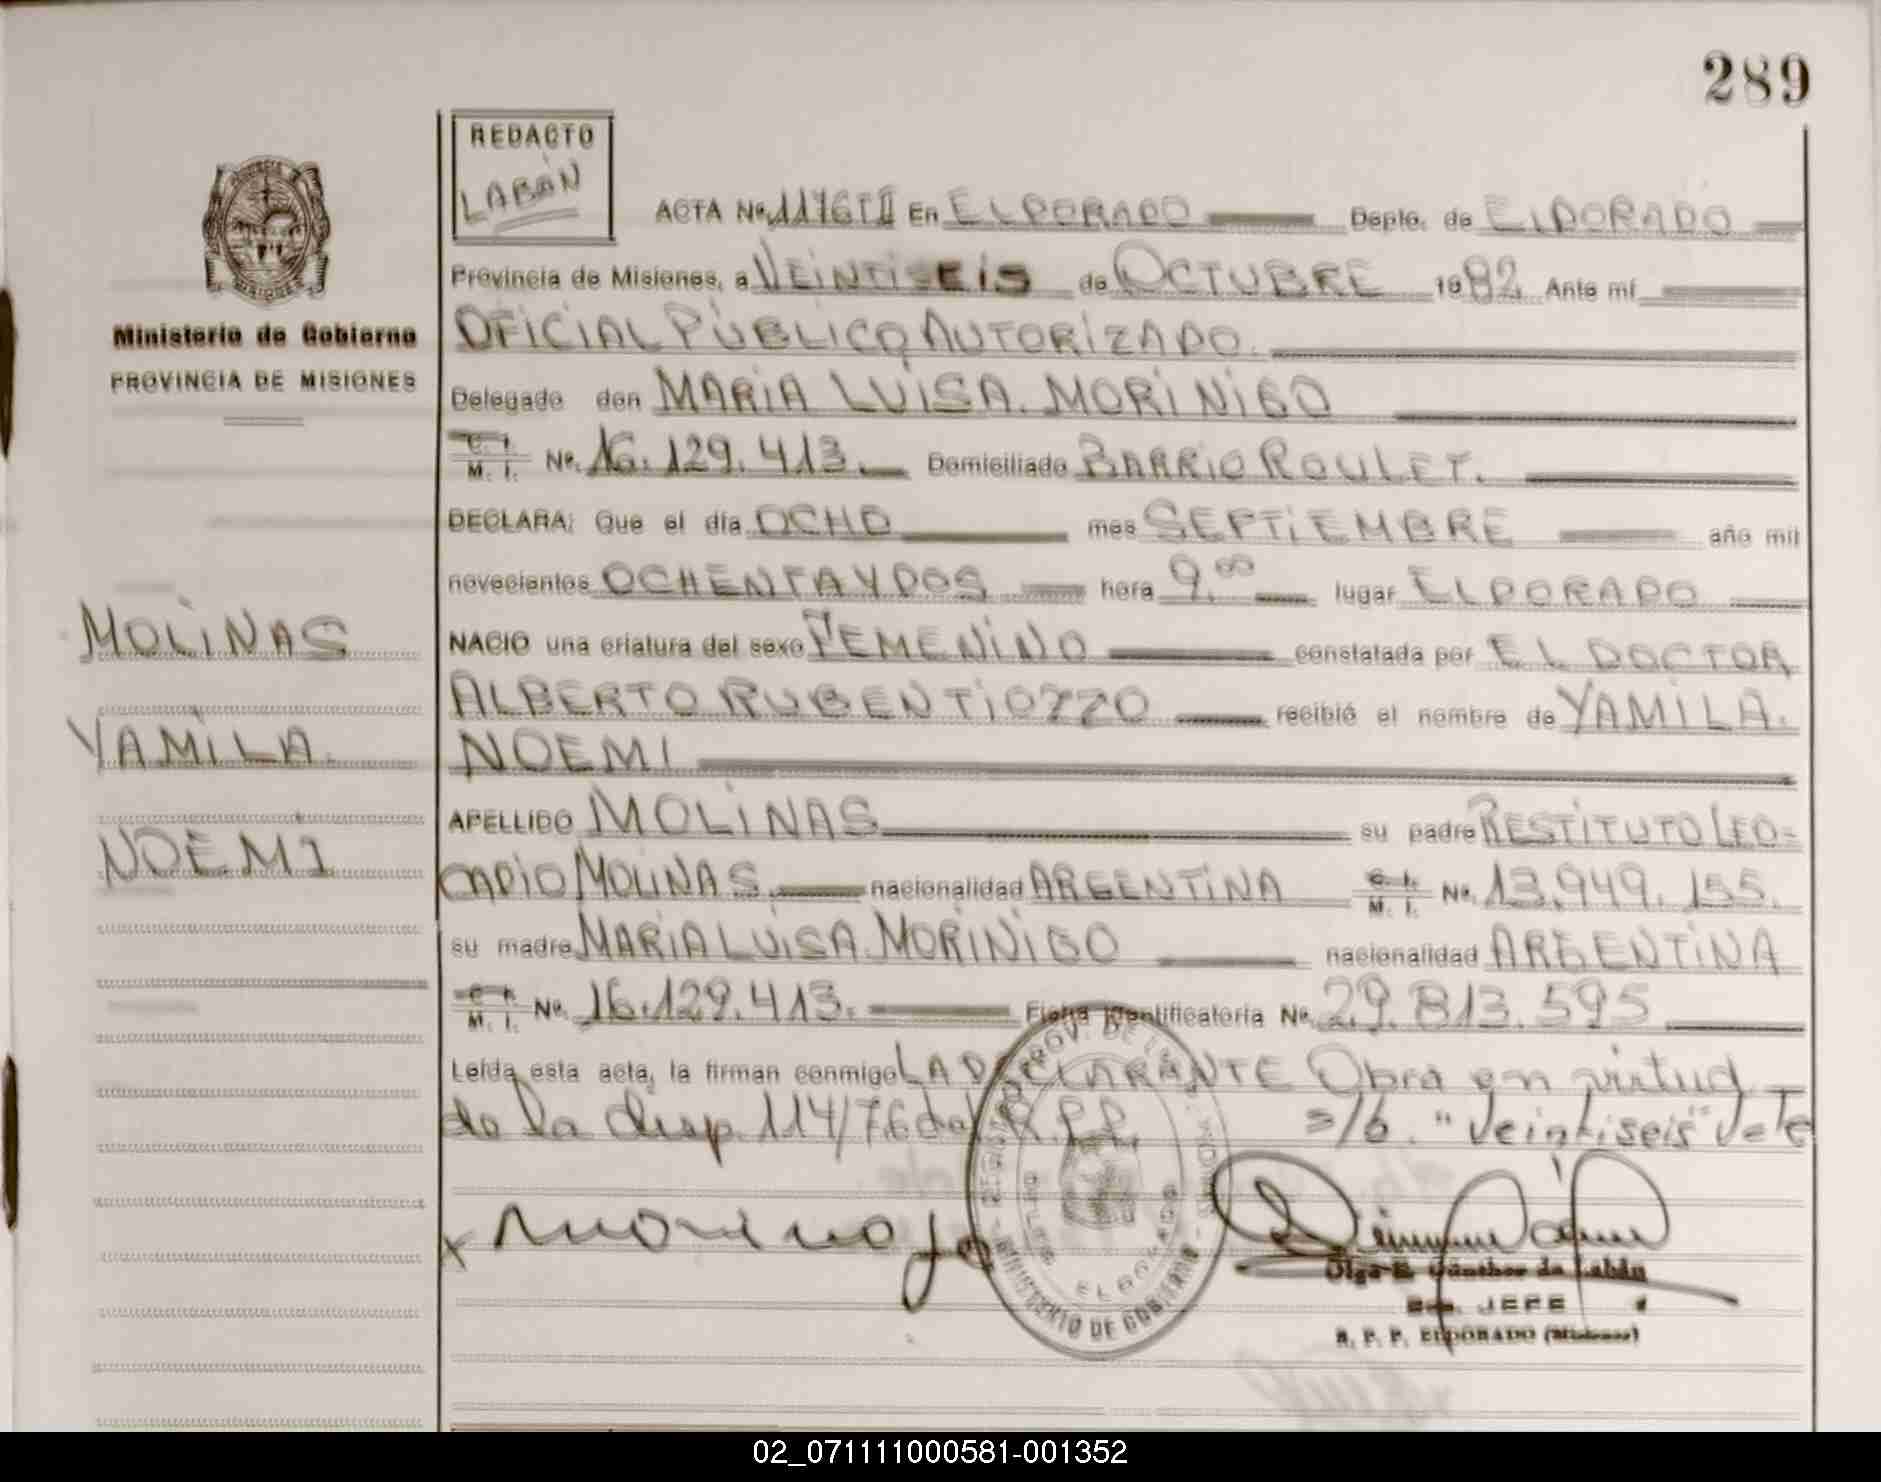 289
REDACTO
LABÁN
ACTA Nº 1176TII En ELDORADO Depto. de ELDORADO
Provincia de Misiones, a VEINTISEIS de OCTUBRE 1982 Ante mí
OFICIAL PÚBLICO AUTORIZADO.
Ministerio de Gobierno
PROVINCIA DE MISIONES
Delegado don MARIA LUISA. MORINIGO
C. I. M. I. Nº. 16.129.413. Domiciliado BARRIO ROULET.
DECLARA: Que el día OCHO mes SEPTIEMBRE año mil
novecientos OCHENTA Y DOS hora 9.00 lugar ELDORADO
MOLINAS
NACIO una criatura del sexo FEMENINO constatada por EL DOCTOR
ALBERTO RUBEN TIOZZO recibió el nombre de YAMILA.
YAMILA.
NOEMI
APELLIDO MOLINAS su padre RESTITUTO LEO=
NOEMI
CADIO MOLINAS nacionalidad ARGENTINA C. I. M. I. Nº. 13.949.155.
su madre MARIA LUISA. MORINIGO nacionalidad ARGENTINA
C. I. M. I. Nº. 16.129.413. Ficha Identificatoria Nº. 29.813.595
Leída esta acta, la firman conmigo LA DECLARANTE Obra en virtud
de la disp. 114/76 del R.P.P. s/b. "Veintiseis" Vale
x Morinigo
REGISTRO PROV. DE LAS PERSONAS
ELDORADO
MINISTERIO DE GOBIERNO
Olga E. Günther de Labán
JEFE
R. P. P. ELDORADO (Misiones)
02_071111000581-001352